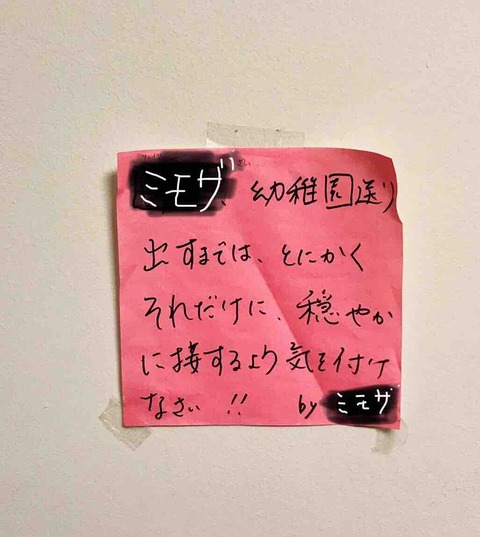 ミモザ、幼稚園送り
出すまでは、とにかく
それだけに、穏やか
に接するよう気を付け
なさい!! by ミモザ